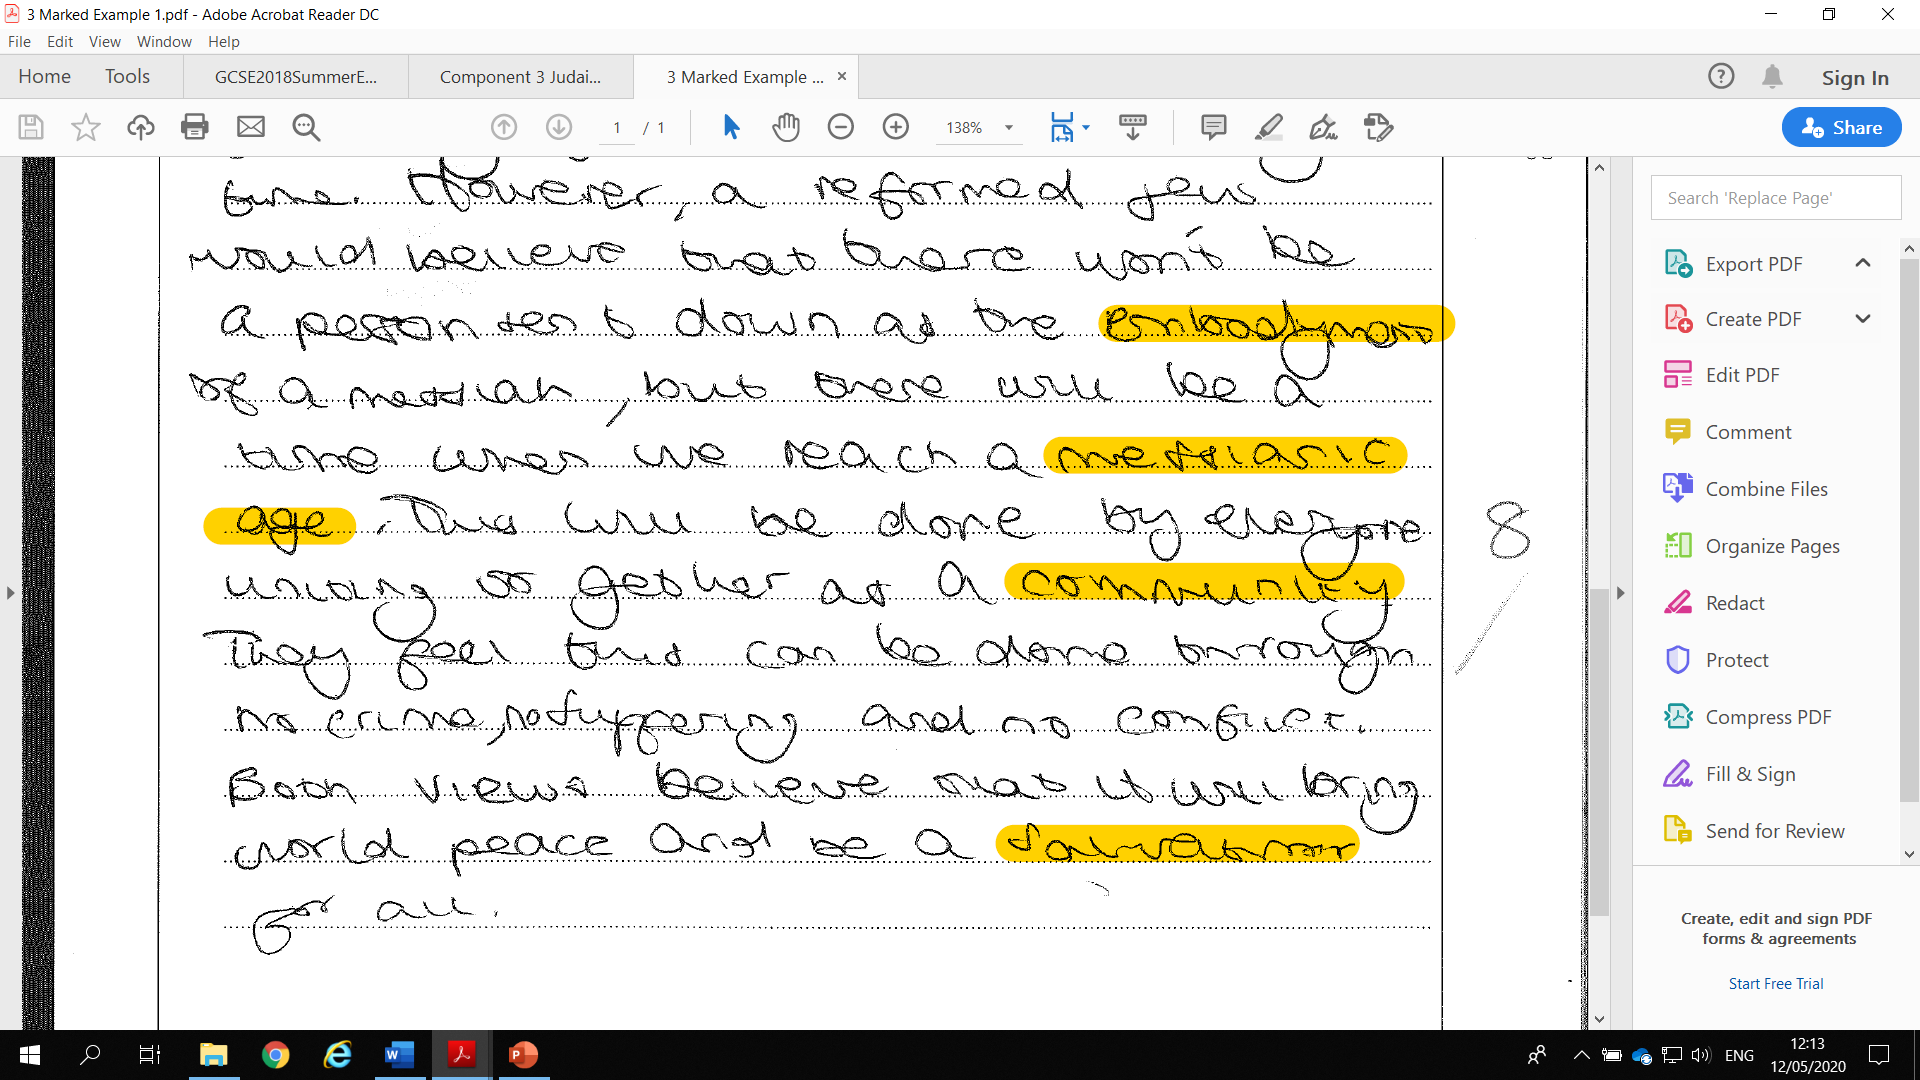 3 Marked Example 1.pdf - Adobe Acrobat Reader DC
File Edit View Window Help
Home Tools GCSE2018SummerE... Component 3 Judai... 3 Marked Example ... × Sign In
1 / 1 138% Share
time. However, a reformed jew
would believe that there won't be
a person sent down as the embodyment
of a messiah, but there will be a
time when we reach a messianic
age. This will be done by everyone
uniting together as a community
They feel this can be done through
no crime, no suffering and no conflict.
Both views believe that it will bring
world peace and be a salvation
for all.
8
Search 'Replace Page'
Export PDF
Create PDF
Edit PDF
Comment
Combine Files
Organize Pages
Redact
Protect
Compress PDF
Fill & Sign
Send for Review
Create, edit and sign PDF
forms & agreements
Start Free Trial
ENG
12:13
12/05/2020